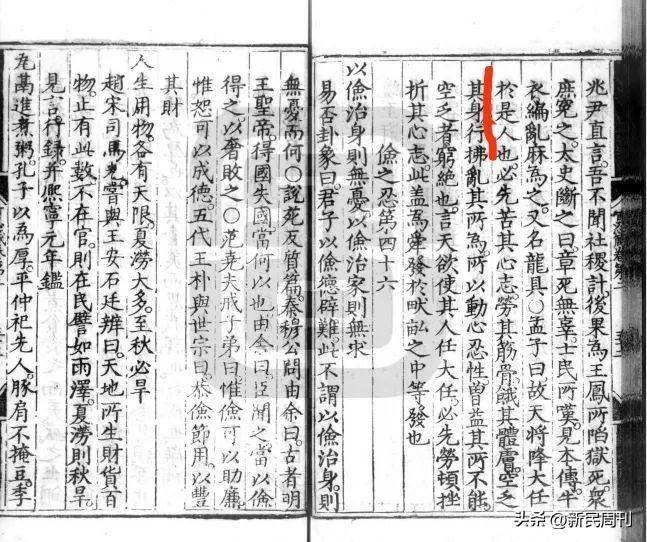 兆尹直言。吾不聞社稷計。後果為王鳳所陷獄死。衆
庶冤之。太史斷之曰。章死無辜。士民所嘆。見本傳。牛
衣編亂麻為之。又名龍具〇孟子曰。故天將降大任
於是人也。必先苦其心志。勞其筋骨。餓其體膚。空乏
其身。行拂亂其所為。所以動心忍性。曾益其所不能。
空乏者。窮絕也。言天欲使其人任大任。必先勞頓挫
折其心志。此蓋為舜發於畎畝之中等發也
儉之忍第四十六
以儉治身則無憂。以儉治家則無求
易否卦象曰。君子以儉德辟難。此不謂以儉治身。則
無憂而何〇說苑反質篇。秦穆公問由余曰。古者明
王聖帝。得國失國。當何以也。由余曰。臣聞之。當以儉
得之。以奢敗之〇范堯夫戒子弟曰。惟儉可以助廉。
惟恕可以成德。五代王朴與世宗曰。恭儉節用。以豐
其財
人生用物。各有天限。夏澇大多。至秋必旱
趙宋司馬光嘗與王安石廷辨曰。天地所生財貨百
物。止有此數。不在官。則在民。譬如雨澤。夏澇則秋旱。
見言行錄。并熙寧元年鑑
危萬進煮粥。孔子以為厚。平仲祀先人。豚肩不掩豆。李
头条 @新民周刊